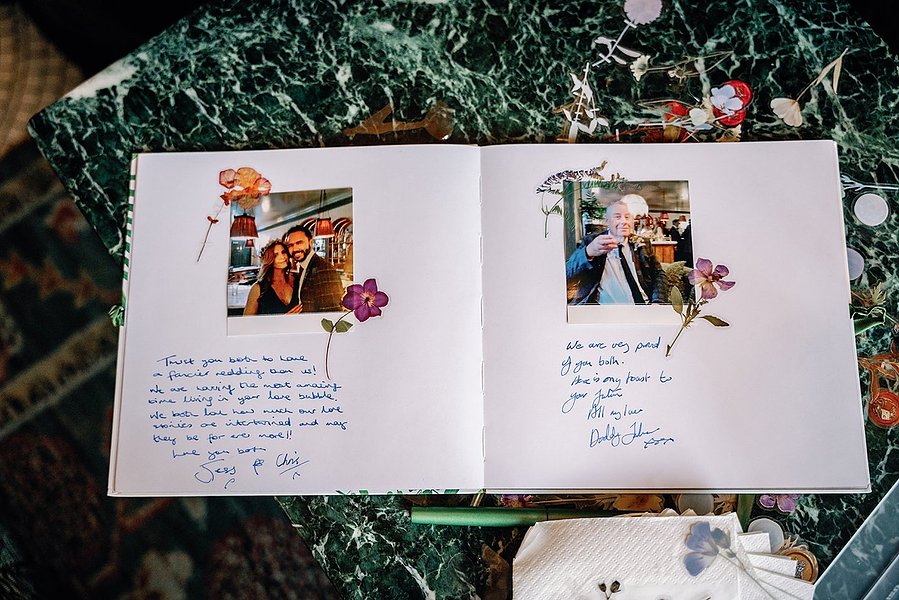 Trust you both to have
a fancier wedding than us!
We are having the most amazing
time living in your love bubble.
We both love how much our love
stories are intertwined and may
they be for ever more!!
Love you both
Jess & Chris
We are very proud
of you both.
Here is my toast to
your future
All my love
Daddy John
xxxx